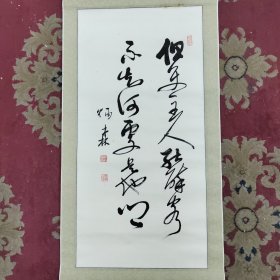 但使主人能醉客
不知何处是他乡
炳森